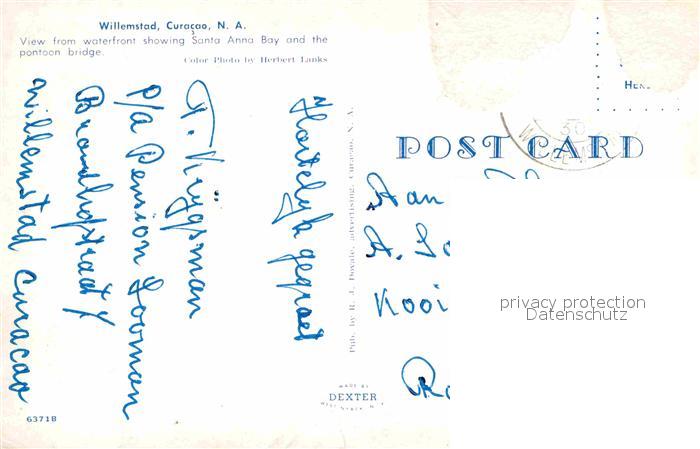 Willemstad, Curaçao, N. A.
View from waterfront showing Santa Anna Bay and the
pontoon bridge.
Color Photo by Herbert Lanks
Hartelijk gegroet
T. Krijgsman
p/a Pension Looman
Willemstad Curacao
63718
Pub. by R. J. Dovale, advertising, Curacao, N. A.
MADE BY
DEXTER
WEST NYACK, N. Y.
POST CARD
30
WILLEMSTAD
Aan
A.
Kooi
privacy protection
Datenschutz